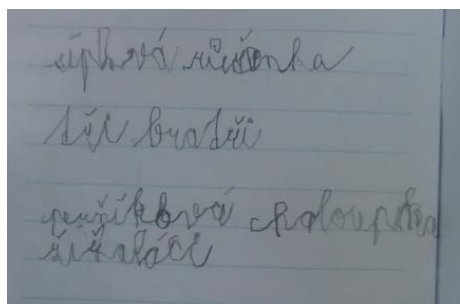 šípková růženka
tři bratři
perníková chaloupka